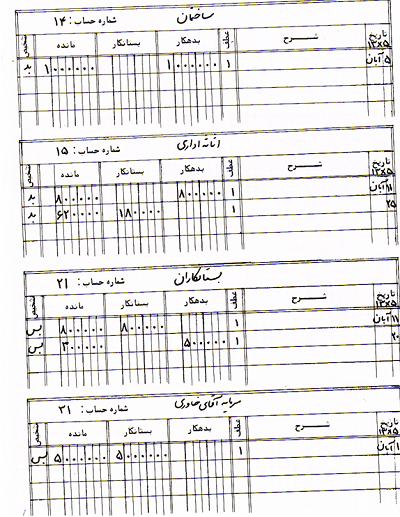 ساختمان شماره حساب: ۱۴
تاریخ ۱۳×۵ شرح عطف بدهکار بستانکار مانده تشخیص
۵ آبان ۱ ۱۰۰۰۰۰۰ ۱۰۰۰۰۰۰ بد
اثاثه اداری شماره حساب: ۱۵
تاریخ ۱۳×۵ شرح عطف بدهکار بستانکار مانده تشخیص
۱۱ آبان ۱ ۸۰۰۰۰۰ ۸۰۰۰۰۰ بد
۲۵ ۱ ۱۸۰۰۰۰ ۶۲۰۰۰۰ بد
بستانکاران شماره حساب: ۲۱
تاریخ ۱۳×۵ شرح عطف بدهکار بستانکار مانده تشخیص
۱۱ آبان ۱ ۸۰۰۰۰۰ ۸۰۰۰۰۰ بس
۲۰ ۱ ۵۰۰۰۰۰ ۳۰۰۰۰۰ بس
سرمایه آقای خاوری شماره حساب: ۳۱
تاریخ ۱۳×۵ شرح عطف بدهکار بستانکار مانده تشخیص
۱ آبان ۱ ۵۰۰۰۰۰۰ ۵۰۰۰۰۰۰ بس